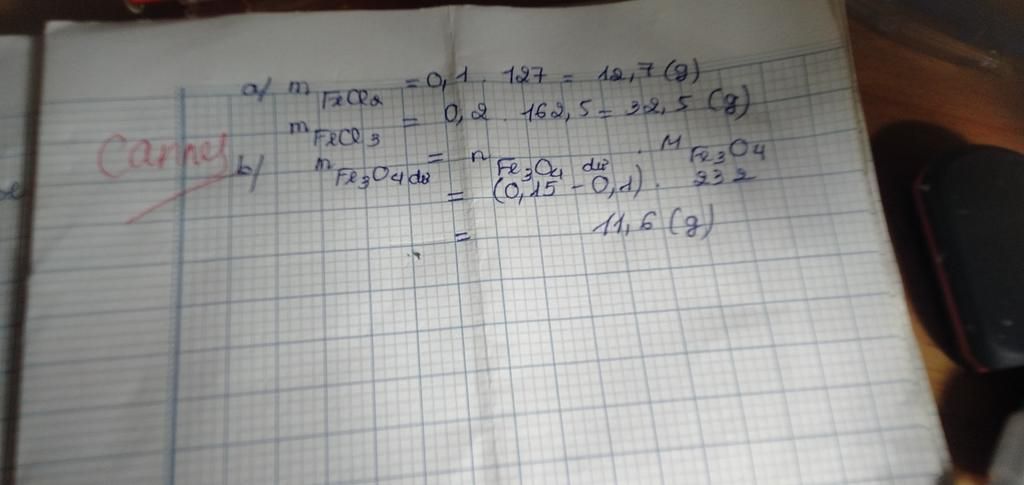 a/ m FeCl2 = 0,1 . 127 = 12,7 (g)
m FeCl3 = 0,2 . 162,5 = 32,5 (g)
b/ m Fe3O4 dư = n Fe3O4 dư . M Fe3O4
= (0,15 - 0,1) . 232
= 11,6 (g)